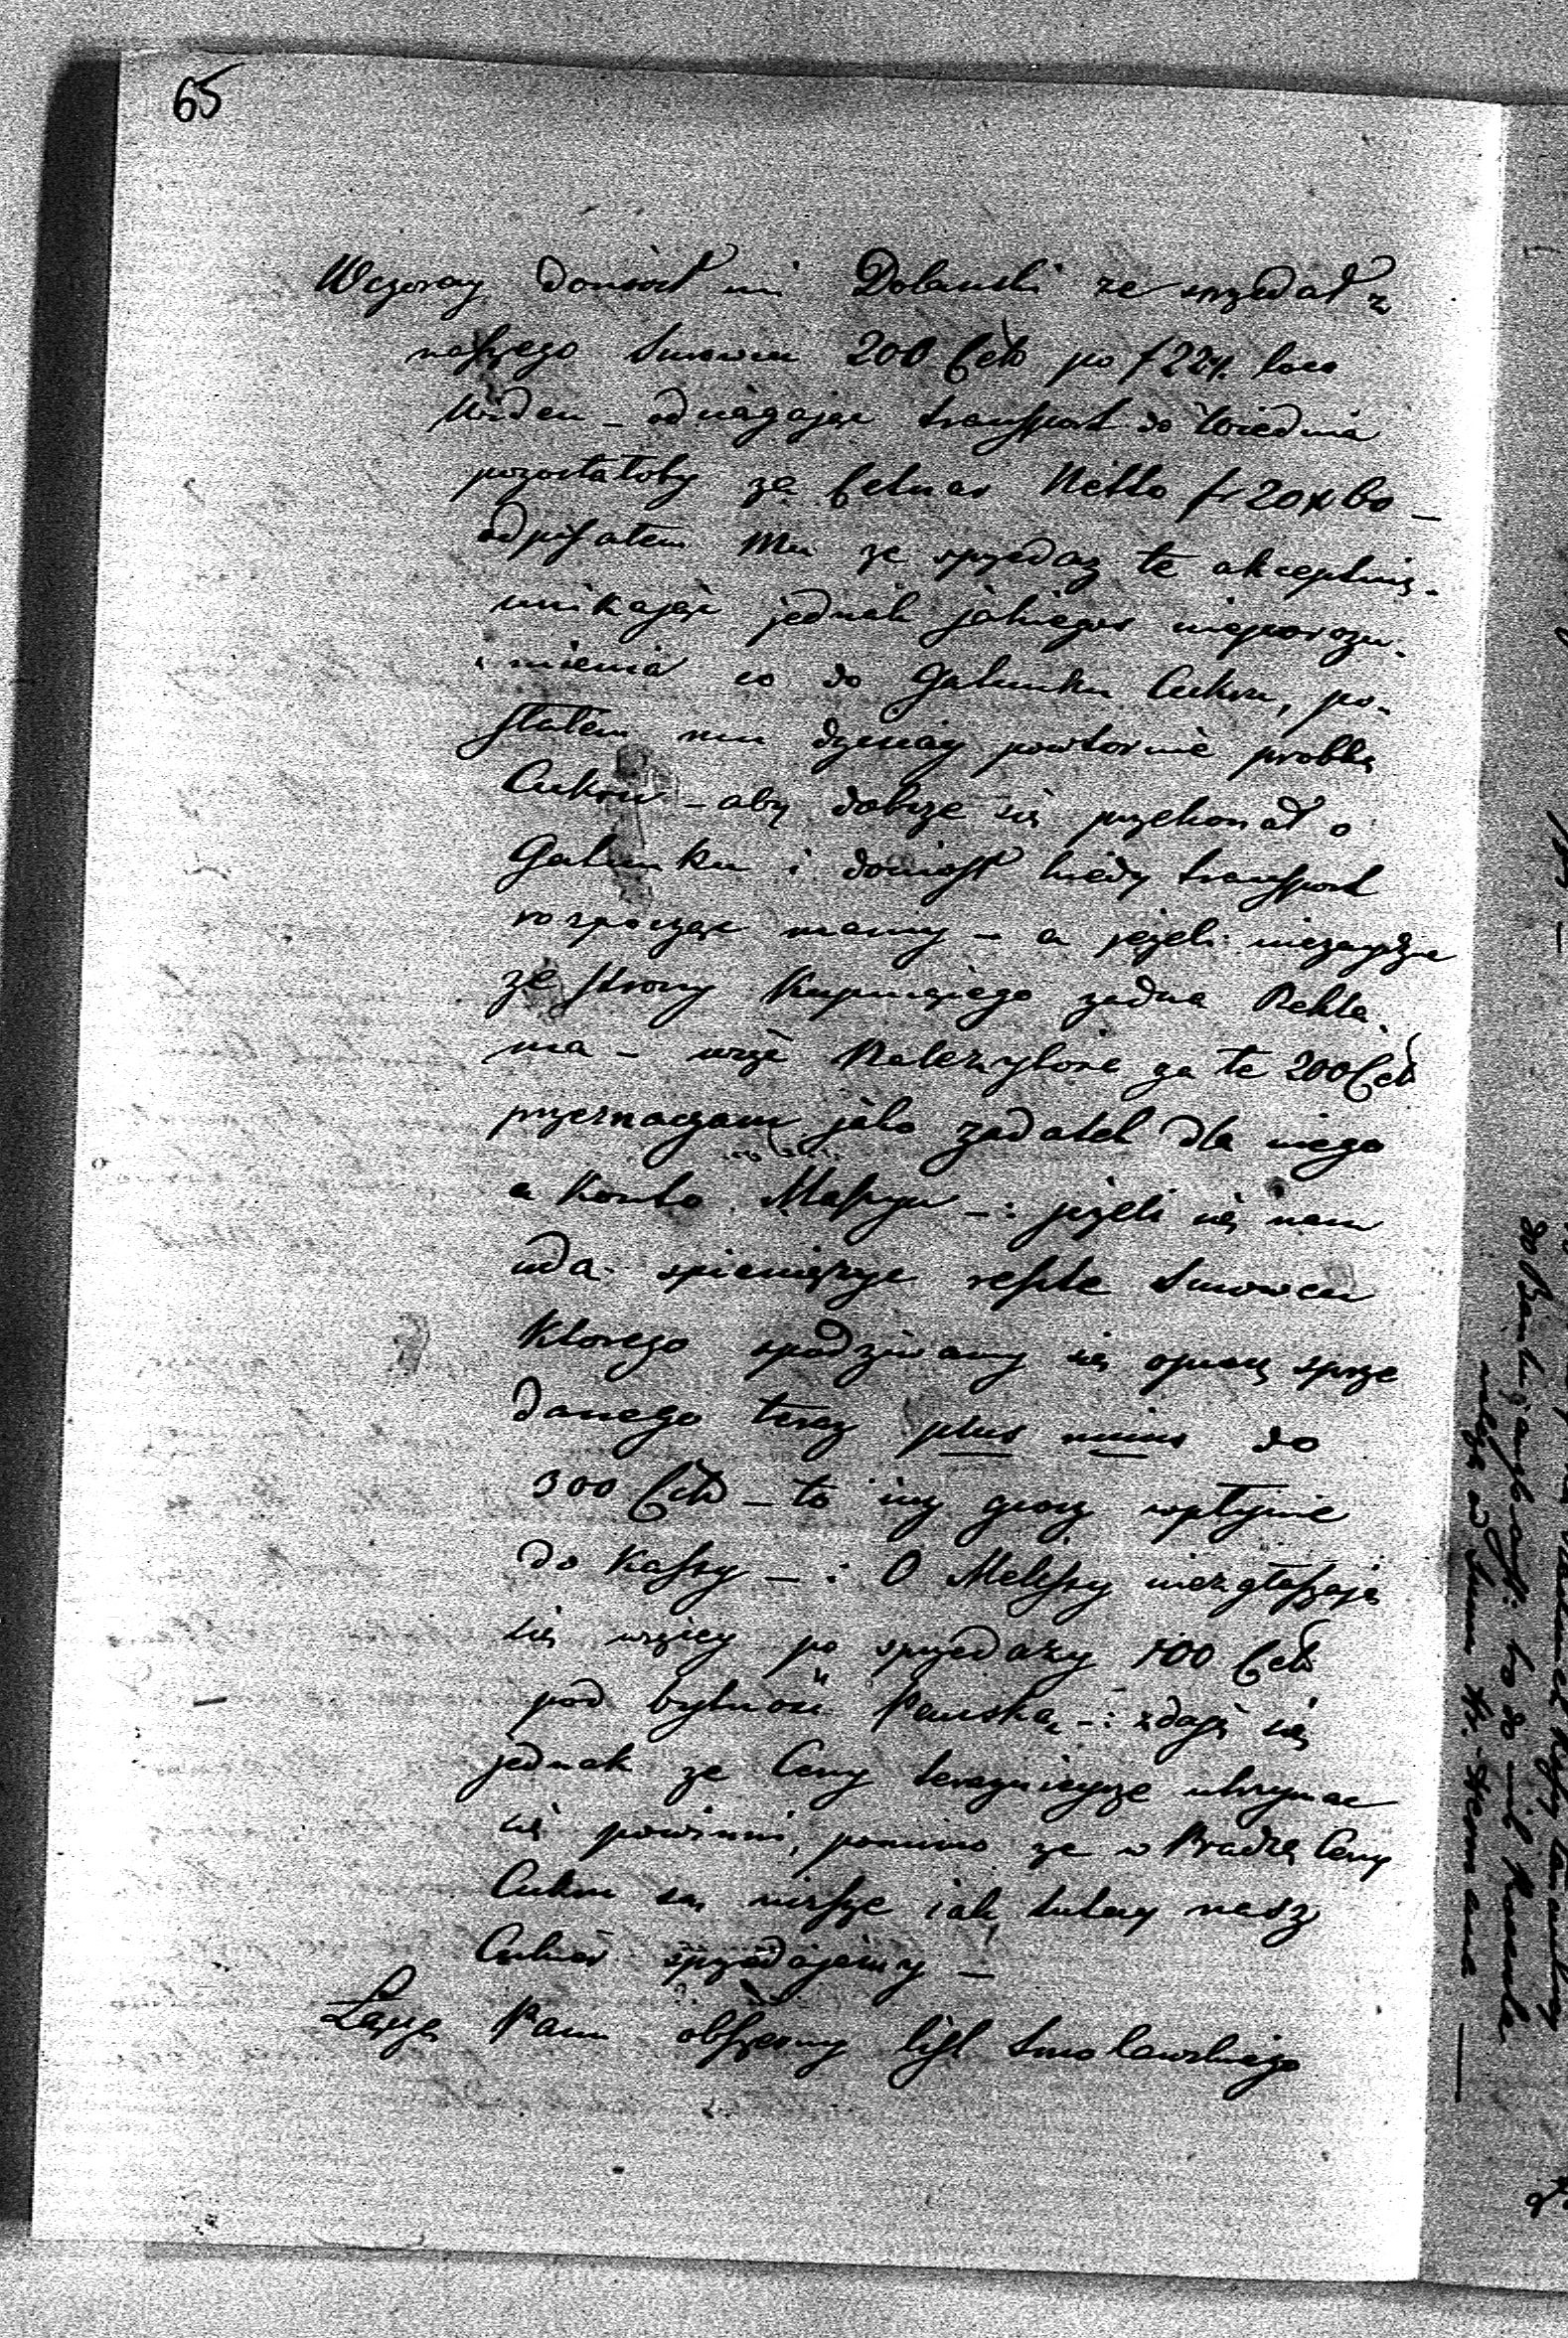 65
Wczoray doniósł mi Dolanski że sprzedał z
naszego Surowcu 200 Cet. po f 22 loco
Widen _ odciągając transport do Wiednia
pozostałoby za Cetnar Netto fr 20 x 60 _
odpisałem Mu że sprzedaz te akceptuię.
unikając jednak jakiegos nieporozu-
mienia co do Gatunku Cukru, po-
słałem mu dzisiay powtornie probkę
Cukru - aby dobrze się przekonał o
Gatunku i doniosł kiedy transport
rozpocząc mamy - a jeżeli niezaydzie
ze strony Kupuiącego zadna Rekla-
ma - więc Należytosc za te 200 Cet.
przeznaczam jako zadatek dla niego
a Konto Maszyn -: jeżeli się nam
uda spieniężyc resztę Surowcu
Ktorego spodziwamy się oprocz sprze
danego teraz plus minus do
300 Cet. - to iuz grosz wpłynie
do Kassy - : O Melassy niezgłaszaią
się więcy po sprzedazy 100 Cet.
pod bytność Pańską -: zdaję się
jednak że Ceny terazniejsze utrzymac
się powinni, pomimo że w Pradze Ceny
Cukru są niższe iak tutay nasz
Cukier sprzedajemy -
Łączę Panu obszerny list Smolawskiego